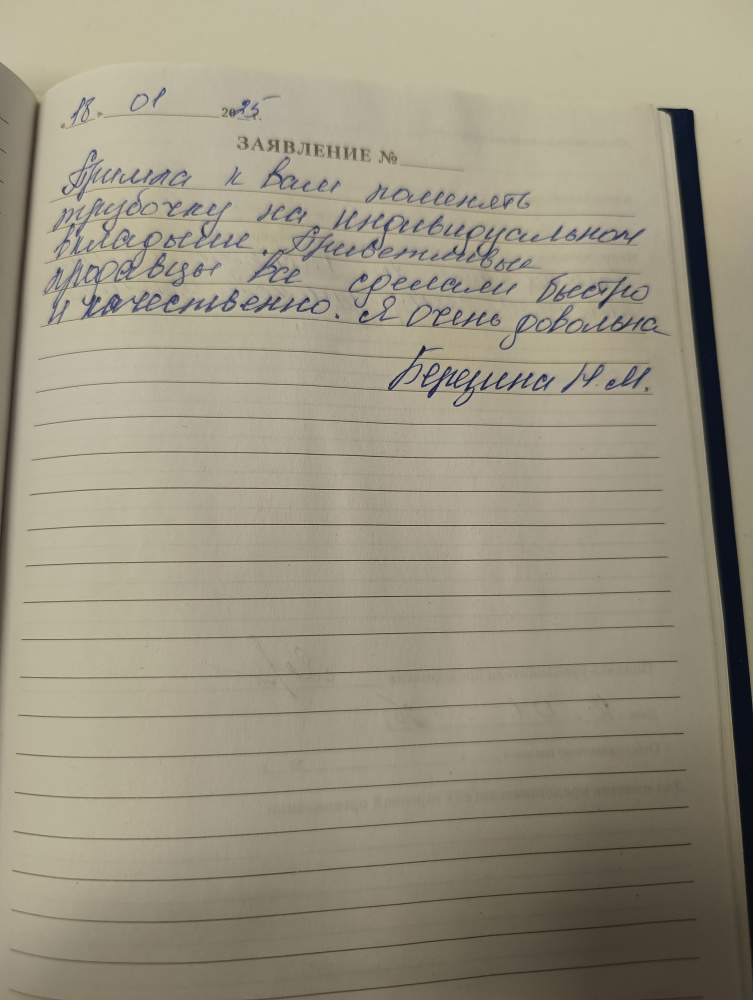 «18» 01 2025 г.
ЗАЯВЛЕНИЕ №
Пришла к Вам поменять
трубочку на индивидуальном
вкладыше. Приветливые
продавцы все сделали быстро
и качественно. Я очень довольна
Березина Н.М.